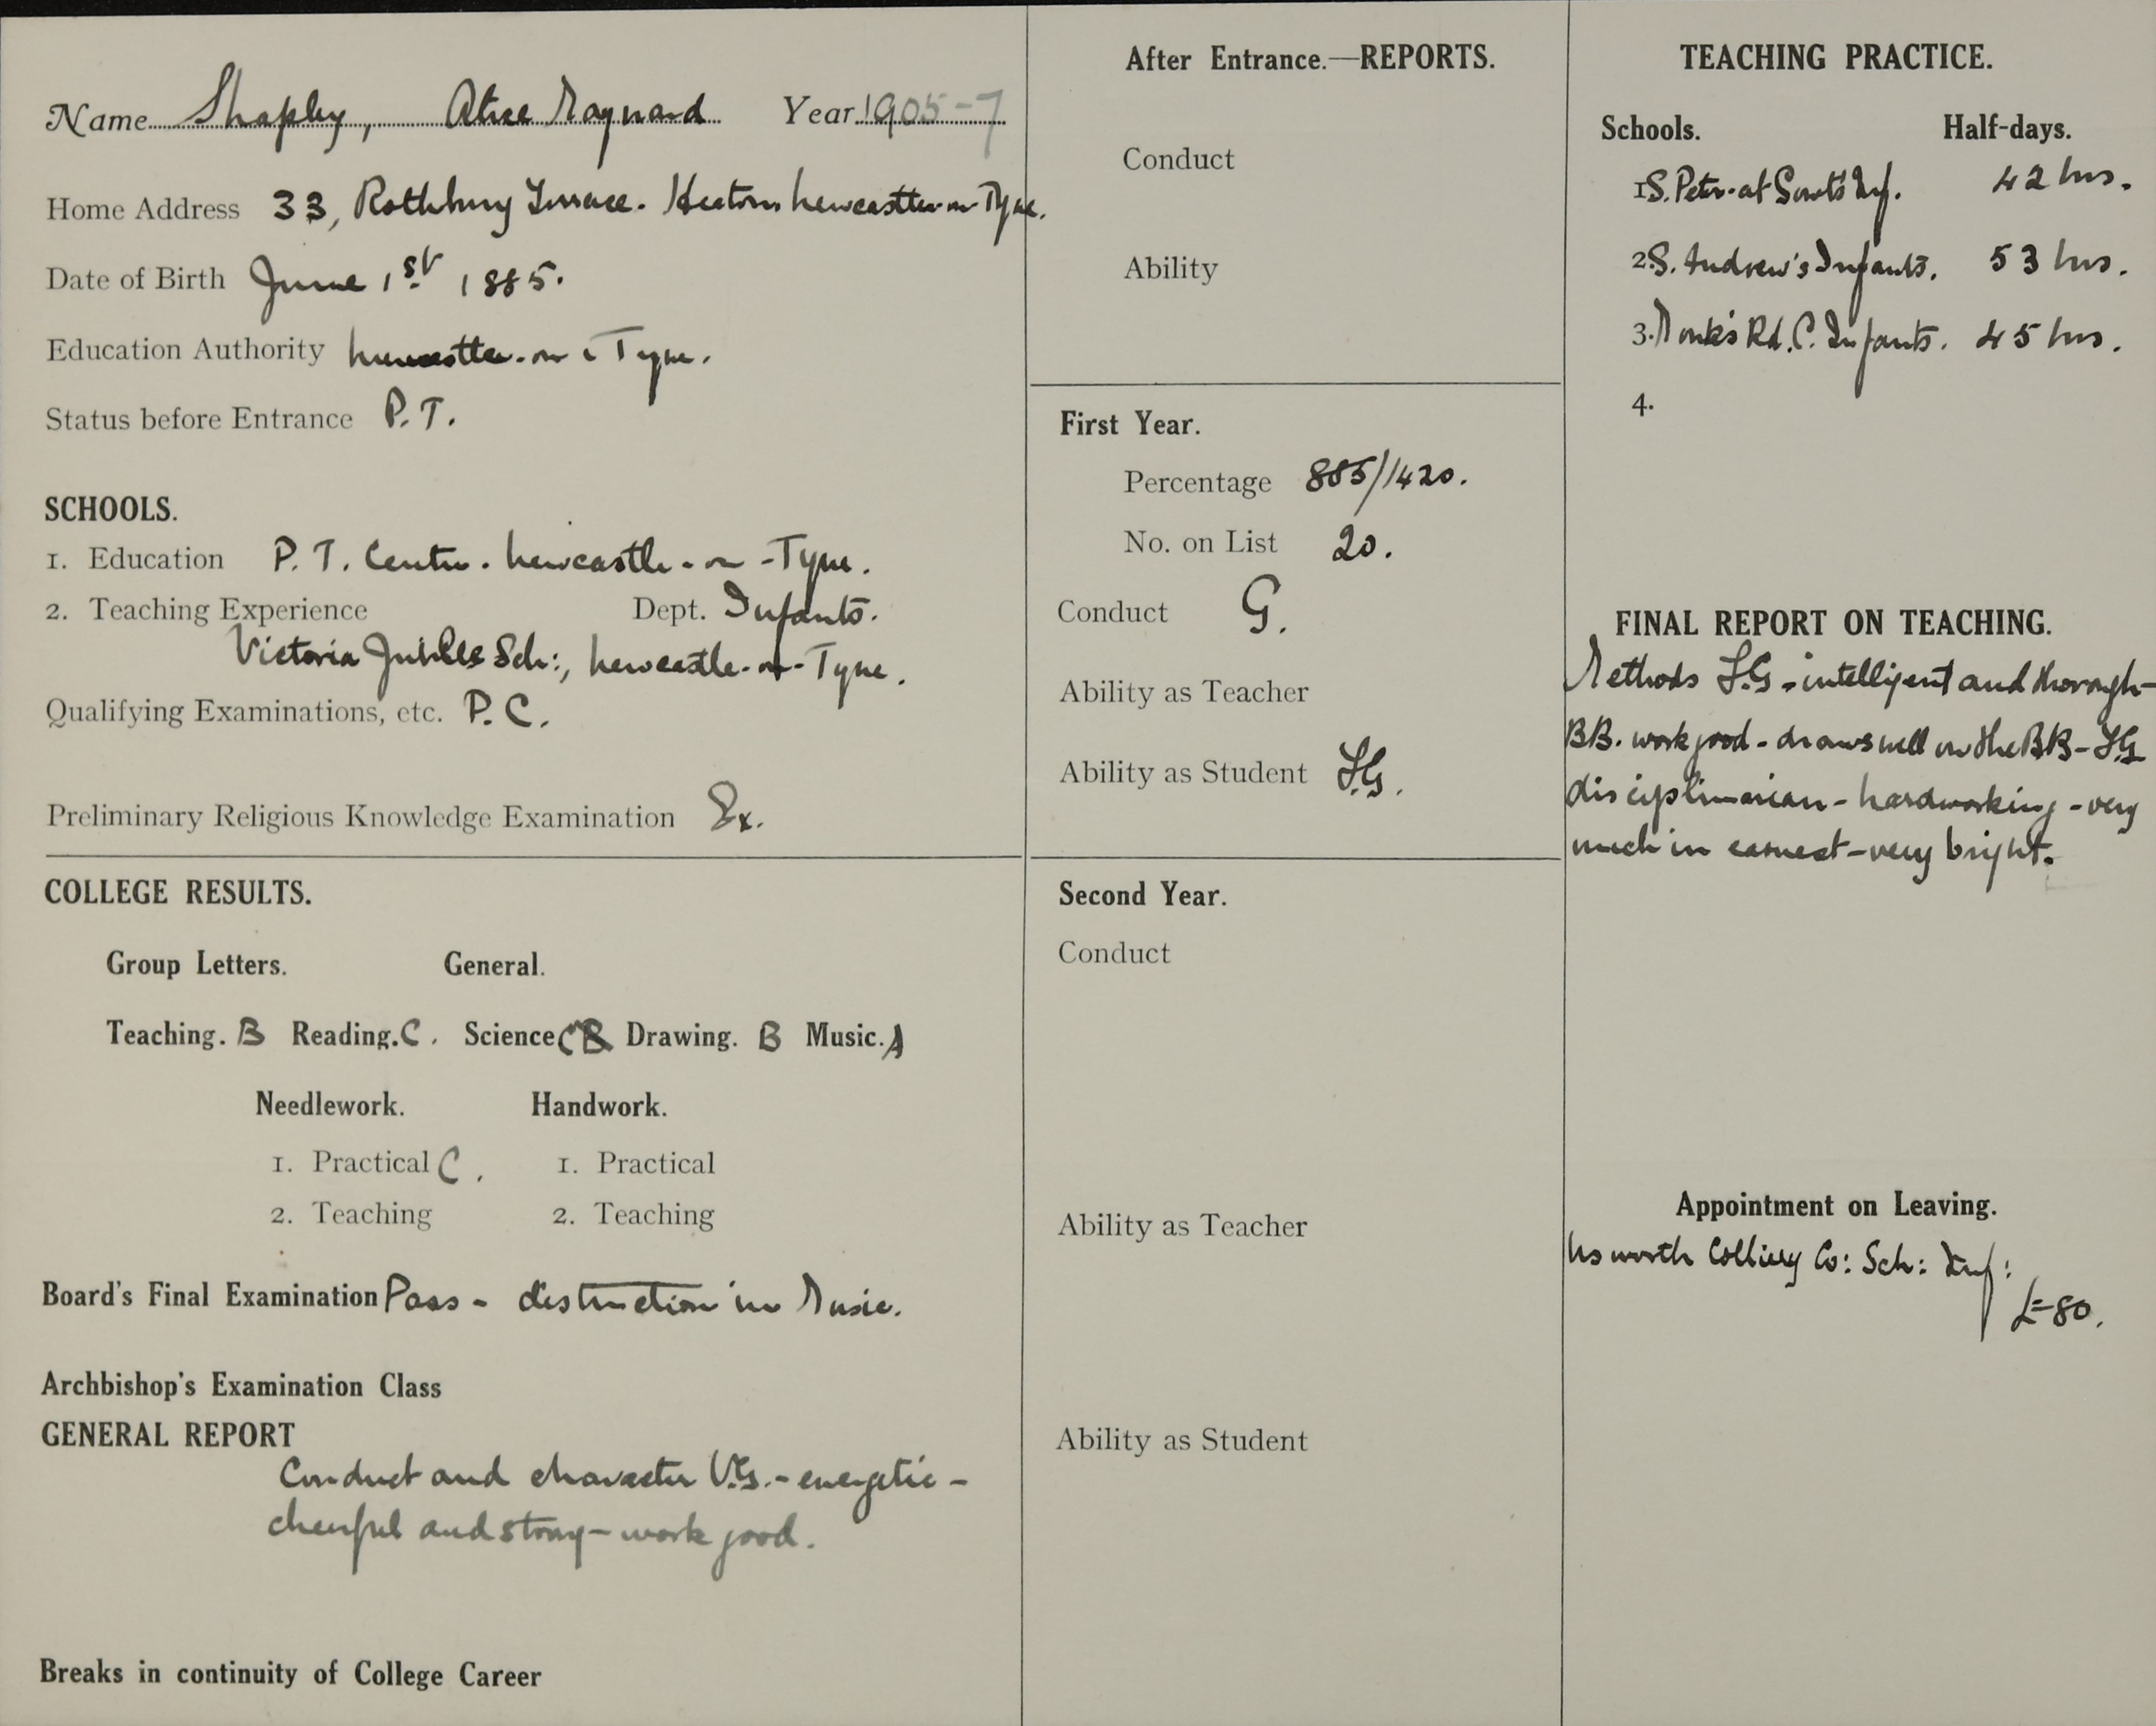 Name Shapley, Alice Maynard Year 1905-7
Home Address 33, Rothbury Terrace. Heaton Newcastle-on-Tyne.
Date of Birth June 1st 1885.
Education Authority Newcastle-on-Tyne.
Status before Entrance P.T.
SCHOOLS.
1. Education P. T. Centre. Newcastle-on-Tyne.
2. Teaching Experience Dept. Infants.
Victoria Jubilee Sch:, Newcastle-on-Tyne.
Qualifying Examinations, etc. P.C.
Preliminary Religious Knowledge Examination Ex.
COLLEGE RESULTS.
Group Letters. General.
Teaching. B Reading. C. Science C Drawing. B Music. A
Needlework. Handwork.
1. Practical C. 1. Practical
2. Teaching 2. Teaching
Board's Final Examination Pass - distinction in Music.
Archbishop's Examination Class
GENERAL REPORT
Conduct and character V.G. - energetic -
cheerful and strong - work good.
Breaks in continuity of College Career
After Entrance.—REPORTS.
Conduct
Ability
First Year.
Percentage 885/1420.
No. on List 20.
Conduct G.
Ability as Teacher
Ability as Student F.G.
Second Year.
Conduct
Ability as Teacher
Ability as Student
TEACHING PRACTICE.
Schools. Half-days.
1 S. Peter-at-Gowts Inf. 42 hrs.
2 S. Andrew's Infants. 53 hrs.
3. Monk's Rd. C. Infants. 45 hrs.
4.
FINAL REPORT ON TEACHING.
Methods F.G - intelligent and thorough -
BB. work good - draws well on the BB - F.G
disciplinarian - hardworking - very
much in earnest - very bright.
Appointment on Leaving.
Usworth Colliery Co: Sch: Inf:
£80.